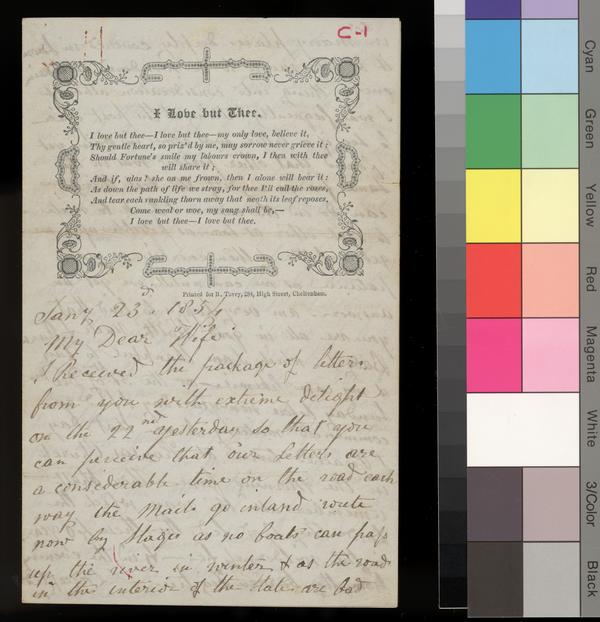 C-1
I Love but Thee.
I love but thee—I love but thee—my only love, believe it,
Thy gentle heart, so priz'd by me, may sorrow never grieve it;
Should Fortune's smile my labours crown, I then with thee
will share it;
And if, alas! she on me frown, then I alone will bear it:
As down the path of life we stray, for thee I'll cull the roses,
And tear each rankling thorn away that neath its leaf reposes,
Come weal or woe, my song shall be,—
I love but thee—I love but thee.
Printed for R. Tovey, 294, High Street, Cheltenham.
Jany 23d. 1854
My Dear Wife
I Received the package of letters
from you with extreme delight
on the 22nd yesterday so that you
can perceive that our Letters are
a considerable time on the road each
way the Mails go inland route
now by Stages as no boats can pass
up the river in winter & as the roads
in the interior of the State are bad
Cyan
Green
Yellow
Red
Magenta
White
3/Color
Black